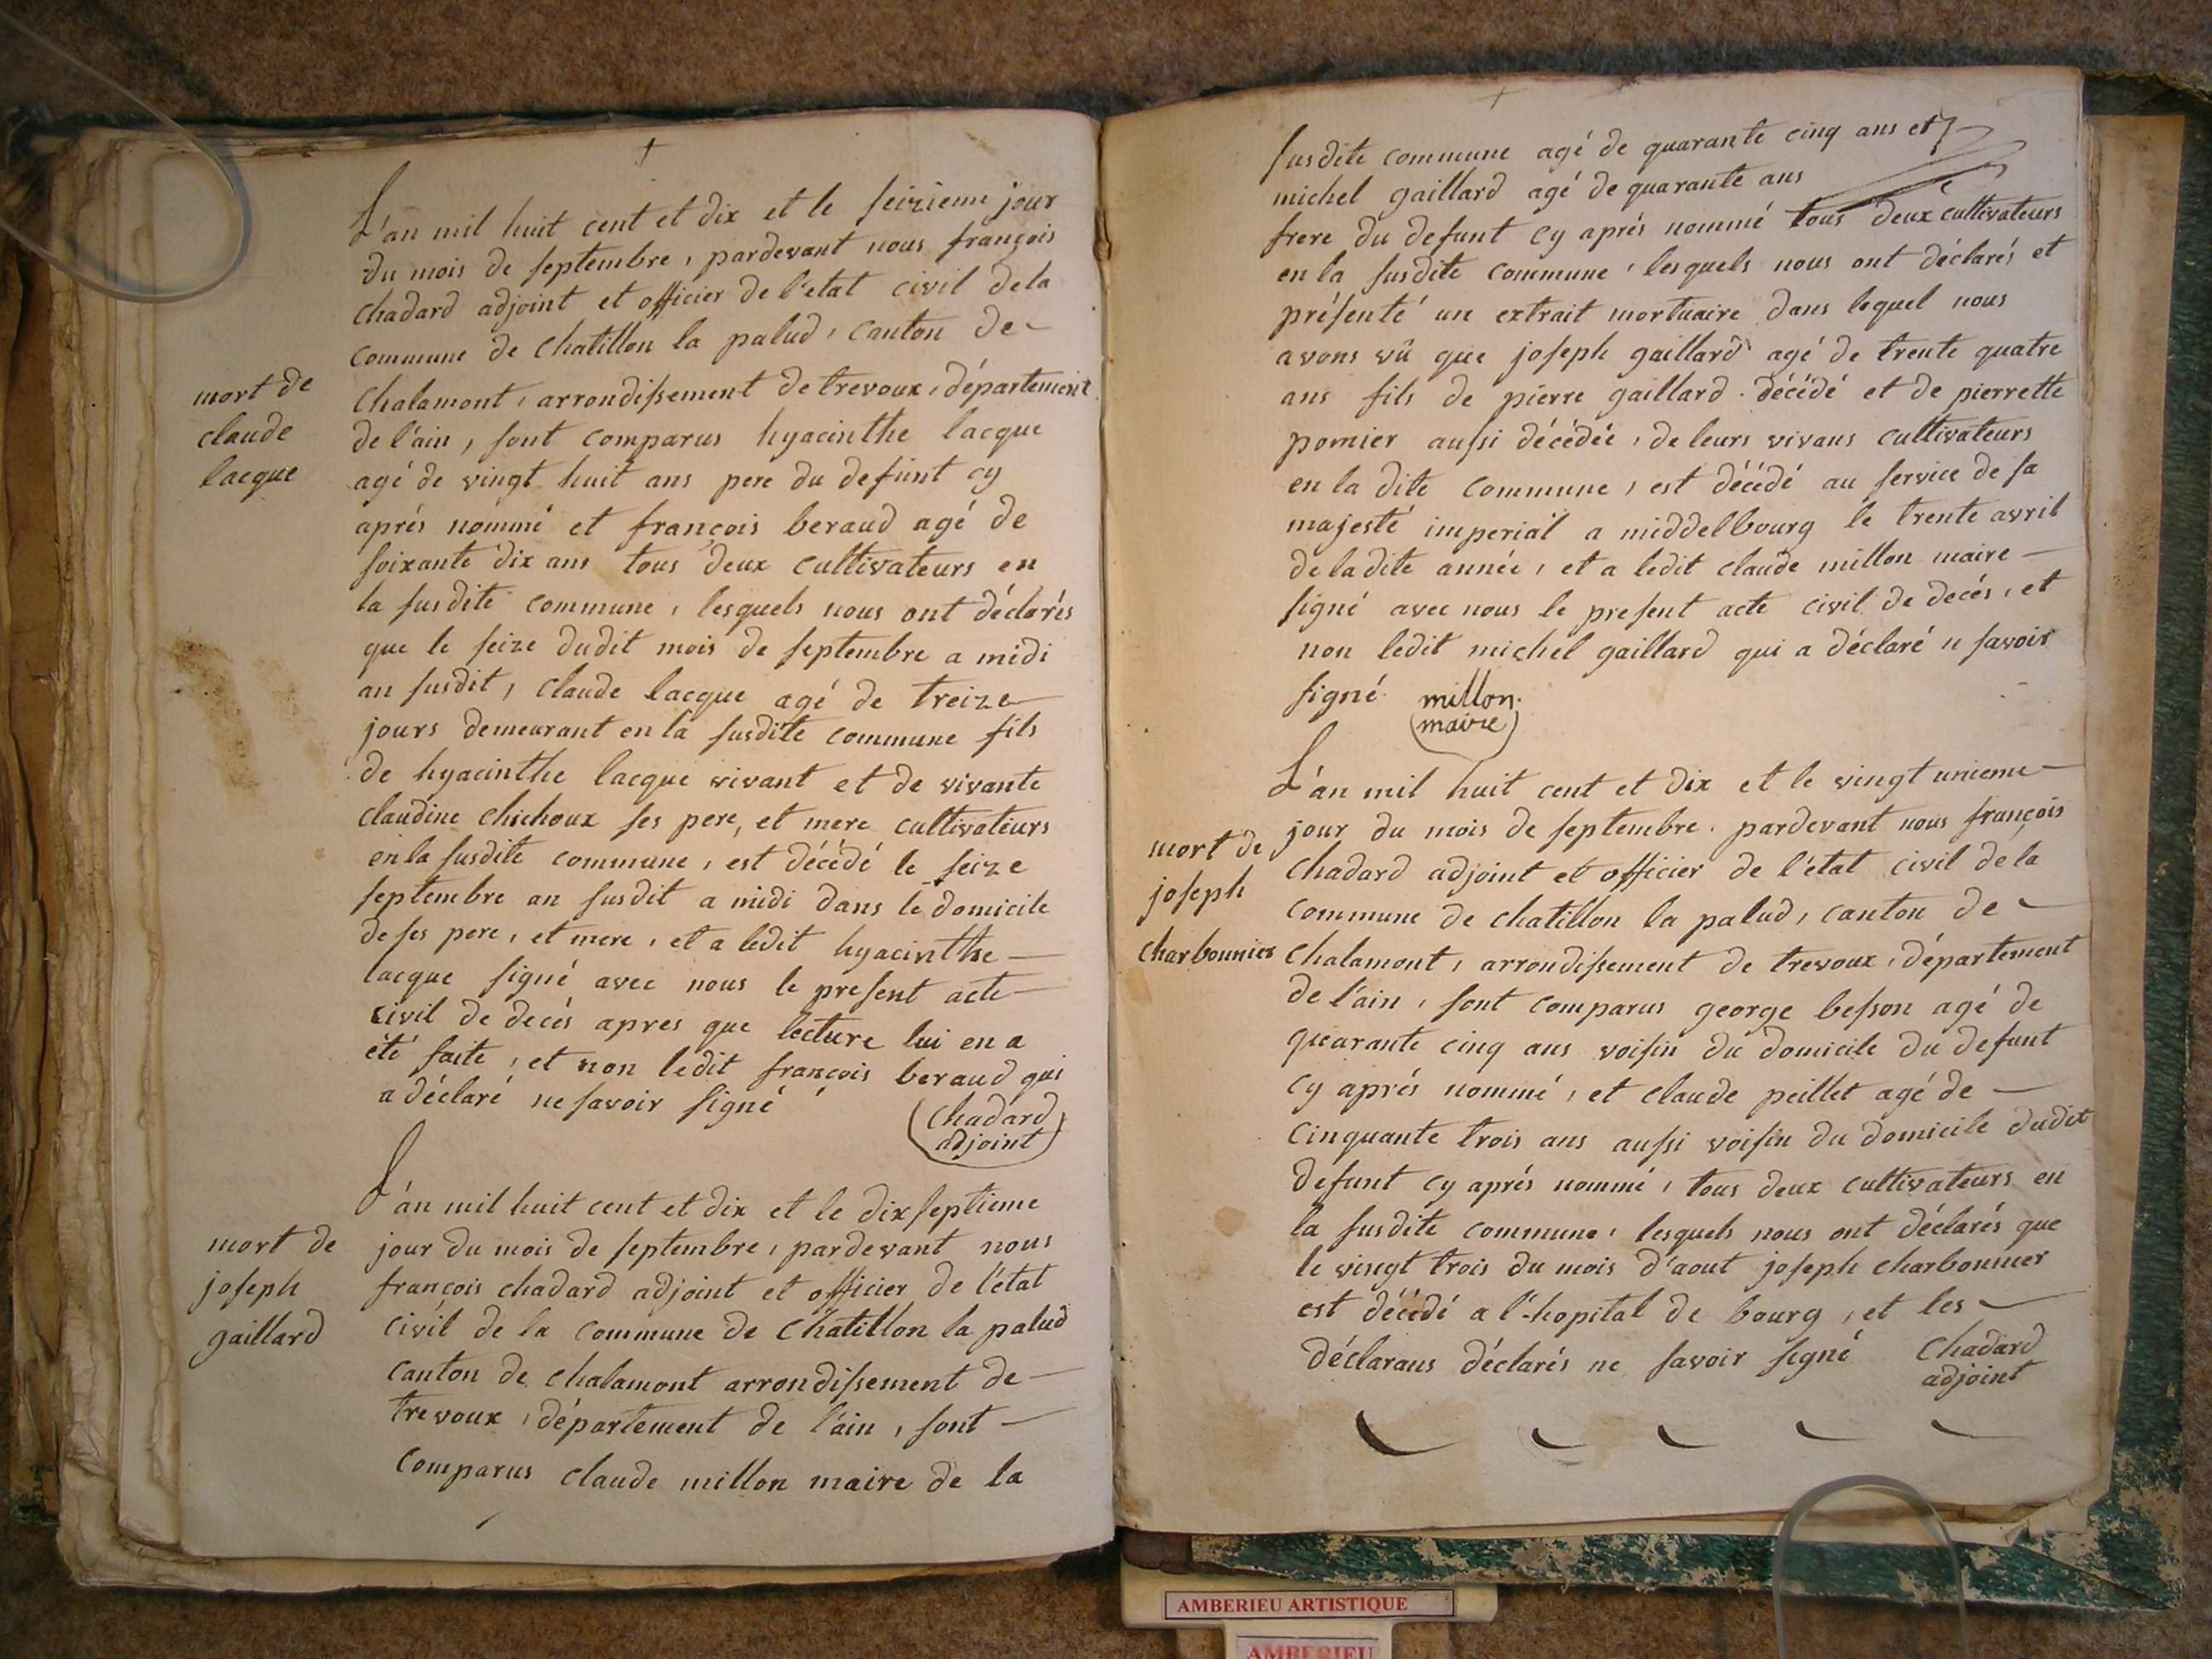 L'an mil huit cent et dix et le seizieme jour
du mois de septembre, pardevant nous françois
chadard adjoint et officier de l'etat civil de la
commune de chatillon la palud, canton de
mort de
claude
lacque
chalamont, arrondissement de trevoux, département
de l'ain, sont comparus hyacinthe lacque
agé de vingt huit ans pere du defunt cy
aprés nommé et françois beraud agé de
soixante dix ans tous deux cultivateurs en
la susdite commune, lesquels nous ont déclarés
que le seize dudit mois de septembre a midi
an susdit, claude lacque agé de treize
jours demeurant en la susdite commune fils
de hyacinthe lacque vivant et de vivante
claudine chichoux ses pere, et mere cultivateurs
en la susdite commune, est décédé le seize
septembre an susdit a midi dans le domicile
de ses pere, et mere, et a ledit hyacinthe
lacque signé avec nous le present acte
civil de decés apres que lecture lui en a
été faite, et non ledit françois beraud qui
a déclaré ne savoir signé
chadard
adjoint
L'an mil huit cent et dix et le dix septieme
mort de
joseph
gaillard
jour du mois de septembre, pardevant nous
françois chadard adjoint et officier de l'état
civil de la commune de chatillon la palud
canton de chalamont arrondissement de
trevoux, département de l'ain, sont
comparus claude millon maire de la
susdite commune agé de quarante cinq ans et
michel gaillard agé de quarante ans
frere du defunt cy aprés nommé tous deux cultivateurs
en la susdite commune, lesquels nous ont déclarés et
présenté un extrait mortuaire dans lequel nous
avons vû que joseph gaillard agé de trente quatre
ans fils de pierre gaillard décédé et de pierrette
pomier aussi décédée, de leurs vivans cultivateurs
en la dite commune, est décédé au service de sa
majesté imperial a middelbourg le trente avril
de la dite année, et a ledit claude millon maire
signé avec nous le present acte civil de decés, et
non ledit michel gaillard qui a déclaré n savoir
signé millon
maire
L'an mil huit cent et dix et le vingt unieme
jour du mois de septembre pardevant nous françois
mort de
joseph
charbonnier
chadard adjoint et officier de l'état civil de la
commune de chatillon la palud, canton de
chalamont, arrondissement de trevoux, département
de l'ain, sont comparus george besson agé de
quarante cinq ans voisin du domicile du defunt
cy aprés nommé, et claude peillet agé de
cinquante trois ans aussi voisin du domicile dudit
defunt cy aprés nommé, tous deux cultivateurs en
la susdite commune, lesquels nous ont déclarés que
le vingt trois du mois d'aout joseph charbonnier
est décédé a l'hopital de bourg, et les
déclarans déclarés ne savoir signé chadard
adjoint
AMBERIEU ARTISTIQUE
AMBERIEU